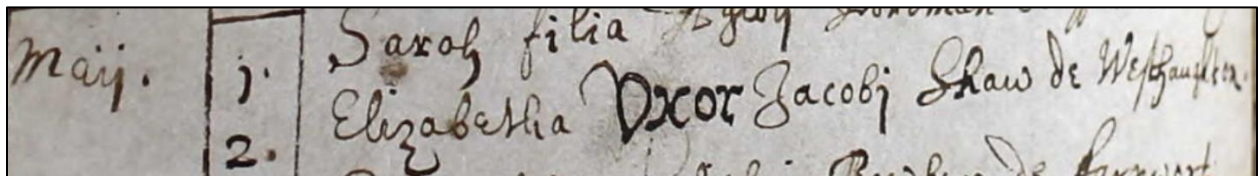 Maij. 1. Sarah filia
2. Elizabetha Uxor Jacobj Shaw de Westhaughton.
de Farnwort